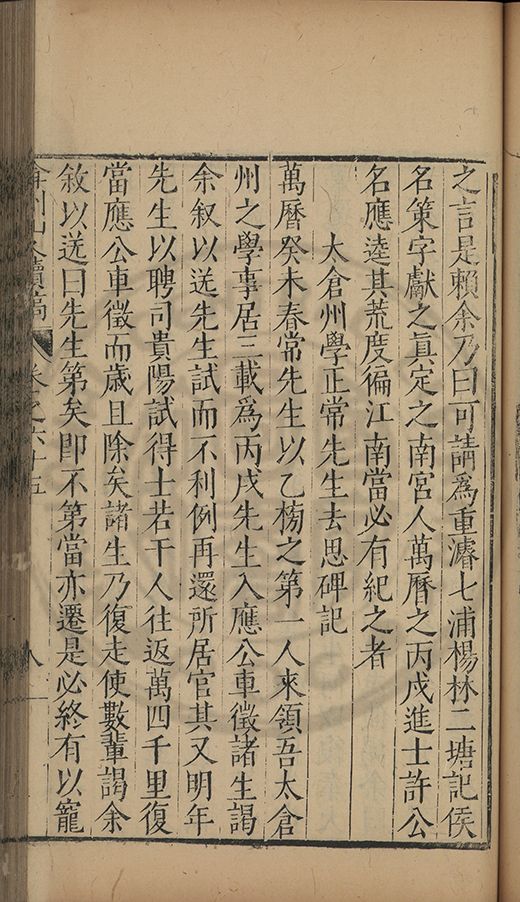 之言是賴余乃曰可請爲重濬七浦楊林二塘記侯
名策字獻之眞定之南宮人萬曆之丙戌進士許公
名應逵其荒度徧江南當必有紀之者
太倉州學正常先生去思碑記
萬曆癸未春常先生以乙榜之第一人來領吾太倉
州之學事居三載爲丙戌先生入應公車徵諸生謁
余叙以送先生試而不利例再還所居官其又明年
先生以聘司貴陽試得士若干人往返萬四千里復
當應公車徵而歲且除矣諸生乃復走使數輩謁余
敘以送曰先生第矣即不第當亦遷是必終有以寵
弇州山人續稿 卷之六十五 八